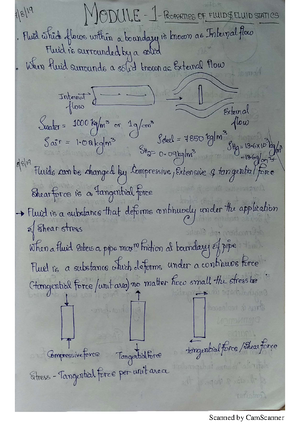 MODULE-1 - PROPERTIES OF FLUID & FLUID STATICS
Fluid which flows within a boundary is known as Internal flow
Fluid is surrounded by a solid
When Fluid surrounds a solid known as External flow
Internal flow
External flow
Swater = 1000 kg/m³ or 1g/cm³
Ssteel = 7850 kg/m³
Sair =
Fluids can be changed by Compressive, Extensive & tangential force
Shear force is a Tangential force
→ Fluid is a substance that deforms continuously under the application
of Shear stress
When a fluid enters a pipe more friction at boundary of pipe
Fluid is a substance which deforms under a continuous force
(tangential force/unit area) no matter how small the stress be
Compressive force
Tangential force
tangential force / Shear force
Stress - Tangential force per unit area
Scanned by CamScanner